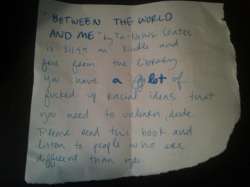 "BETWEEN THE WORLD
AND ME" by Ta-Nehisi Coates
is $10.99 on Kindle and
free from the library
you have a lot of
fucked up racial ideas that
you need to
Please read this book and
listen to people who are
different than you